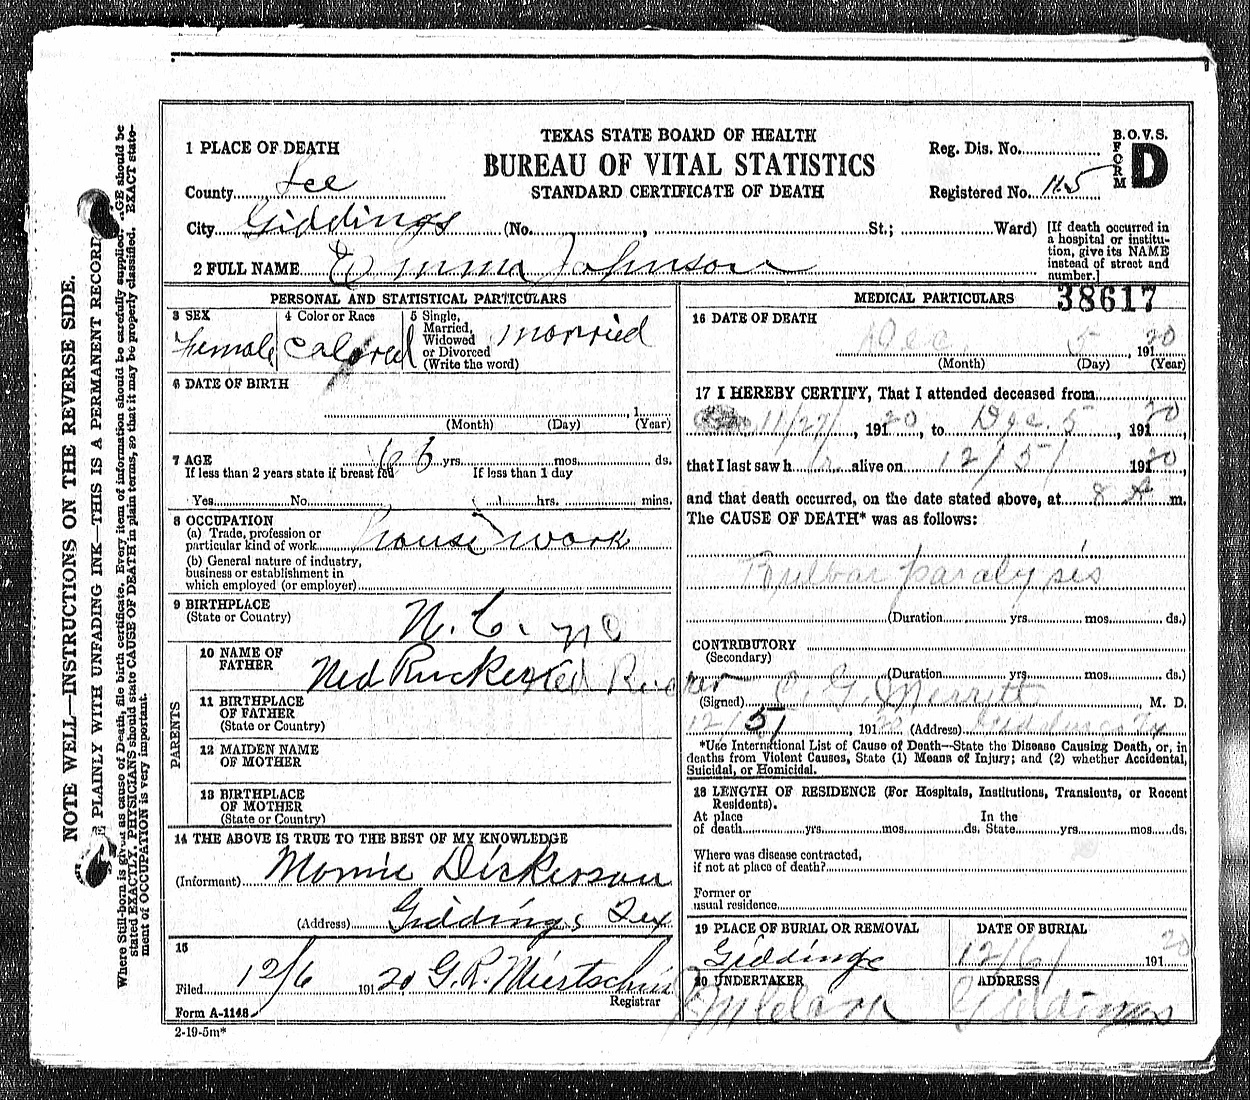 TEXAS STATE BOARD OF HEALTH
BUREAU OF VITAL STATISTICS
STANDARD CERTIFICATE OF DEATH
B.O.V.S.
FORM D
Reg. Dis. No.
Registered No. 115
1 PLACE OF DEATH
County Lee
City Giddings (No. , St.; Ward)
[If death occurred in
a hospital or institu-
tion, give its NAME
instead of street and
number.]
2 FULL NAME Emma Johnson
38617
PERSONAL AND STATISTICAL PARTICULARS
3 SEX
Female
4 Color or Race
Colored
5 Single,
Married,
Widowed
or Divorced
(Write the word)
married
6 DATE OF BIRTH
, 1
(Month) (Day) (Year)
7 AGE 66 yrs. mos. ds.
If less than 2 years state if breast fed If less than 1 day
Yes No. ( ) hrs. mins.
8 OCCUPATION
(a) Trade, profession or
particular kind of work house work
(b) General nature of industry,
business or establishment in
which employed (or employer)
9 BIRTHPLACE
(State or Country)
N. C.
PARENTS
10 NAME OF
FATHER
Ned Rucker
11 BIRTHPLACE
OF FATHER
(State or Country)
12 MAIDEN NAME
OF MOTHER
13 BIRTHPLACE
OF MOTHER
(State or Country)
14 THE ABOVE IS TRUE TO THE BEST OF MY KNOWLEDGE
(Informant) Mornie Dickerson
(Address) Giddings Tex
15
Filed 12/6 1920 G.R. Miertschin
Registrar
Form A-1148
2-19-5m*
MEDICAL PARTICULARS
16 DATE OF DEATH
Dec 5 , 191 20
(Month) (Day) (Year)
17 I HEREBY CERTIFY, That I attended deceased from
11/27/ , 191 20 , to Dec. 5 , 191 20 ,
that I last saw h r alive on 12/5/ 191 20 ,
and that death occurred, on the date stated above, at 8 A m.
The CAUSE OF DEATH* was as follows:
Bulbar paralysis
(Duration yrs. mos. ds.)
CONTRIBUTORY
(Secondary)
(Duration yrs. mos. ds.)
(Signed) C. G. Merritt M. D.
12/5/ , 191 20 (Address) Giddings Tx
*Use International List of Cause of Death—State the Disease Causing Death, or, in
deaths from Violent Causes, State (1) Means of Injury; and (2) whether Accidental,
Suicidal, or Homicidal.
18 LENGTH OF RESIDENCE (For Hospitals, Institutions, Transients, or Recent
Residents).
At place In the
of death yrs. mos. ds. State yrs. mos. ds.
Where was disease contracted,
if not at place of death?
Former or
usual residence
19 PLACE OF BURIAL OR REMOVAL
Giddings
DATE OF BURIAL
12/6/ 191 20
20 UNDERTAKER
ADDRESS
Giddings
NOTE WELL—INSTRUCTIONS ON THE REVERSE SIDE.
PLAINLY WITH UNFADING INK—THIS IS A PERMANENT RECORD
Where Still-born is given as cause of Death, file birth certificate. Every item of information should be carefully supplied. AGE should be
stated EXACTLY. PHYSICIANS should state CAUSE OF DEATH in plain terms, so that it may be properly classified. EXACT state-
ment of OCCUPATION is very important.